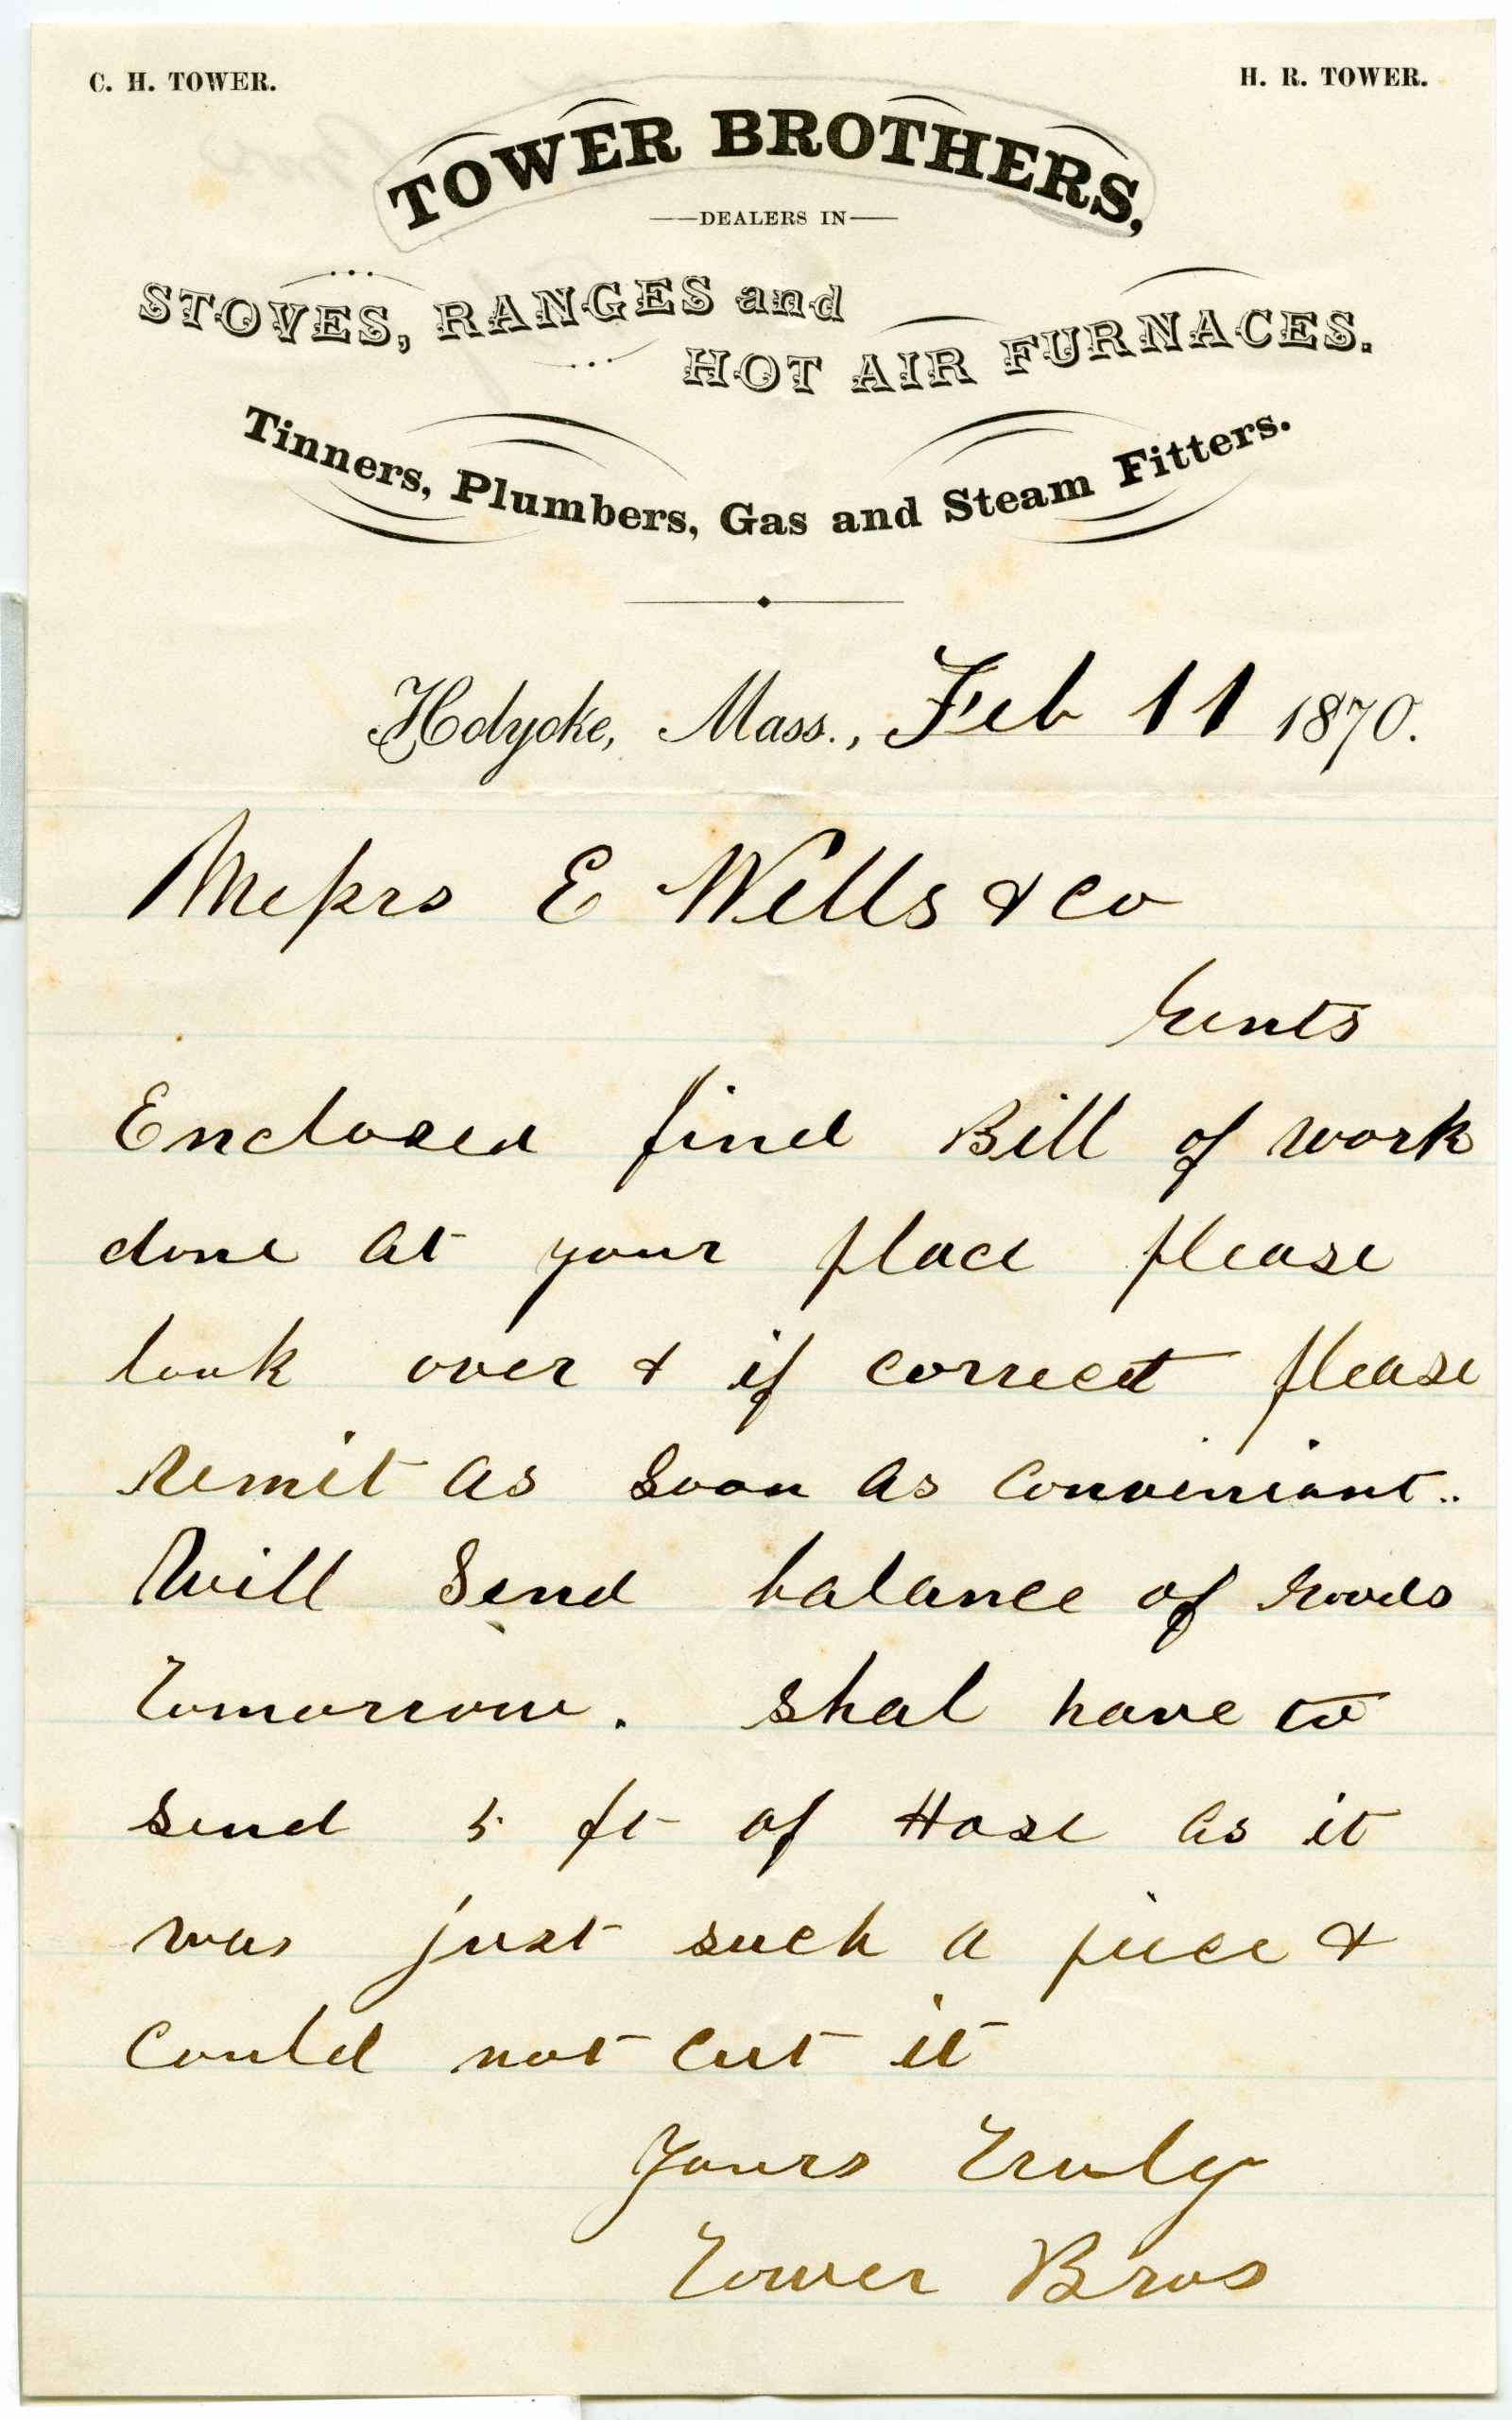 C. H. TOWER.
H. R. TOWER.
TOWER BROTHERS,
DEALERS IN
STOVES, RANGES and
HOT AIR FURNACES.
Tinners, Plumbers, Gas and Steam Fitters.
Holyoke, Mass., Feb 11 1870.
Messrs E Wells & Co
Gents
Enclosed find Bill of work
done at your place please
look over & if correct please
remit as soon as conveniant..
Will Send balance of Goods
Tomorrow. shal have to
send 5 ft of Hose as it
was just such a piece &
could not cut it
Yours Truly
Tower Bros